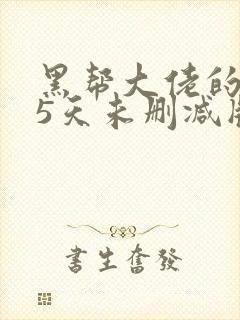 黑帮大佬的
5天未删减版
書生奮發